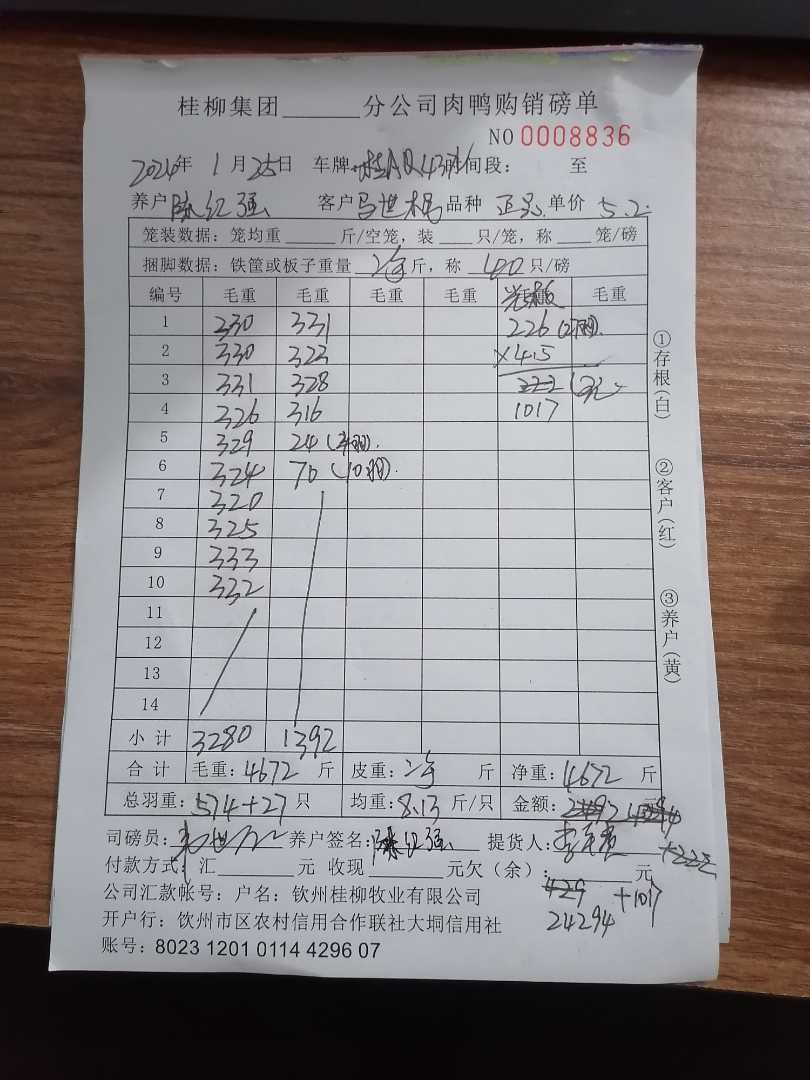 桂柳集团______分公司肉鸭购销磅单
NO 0008836
2024年 1月25日 车牌 时间段: 至
养户 陈红强 客户 马世 品种 正品 单价 5.2
笼装数据: 笼均重 ____ 斤/空笼, 装 ___ 只/笼, 称 ___ 笼/磅
捆脚数据: 铁筐或板子重量 斤, 称 40 只/磅
编号 毛重 毛重 毛重 毛重 毛重
1 230 331 226
2 330 323 ×4.5
3 331 328 222
4 326 316 1017
5 329 24
6 324 70 (10羽).
7 320
8 325
9 333
10 332
11
12
13
14
小计 3280 1392
合计 毛重: 4672 斤 皮重: 斤 净重: 4672 斤
总羽重: 574+27 只 均重: 8.13 斤/只 金额: 元
司磅员: 养户签名: 陈红强 提货人: +222
付款方式: 汇______元 收现______元欠(余): ______元
公司汇款帐号: 户名: 钦州桂柳牧业有限公司
429 +1017
开户行: 钦州市区农村信用合作联社大垌信用社
24294
账号: 8023 1201 0114 4296 07
①存根(白)
②客户(红)
③养户(黄)